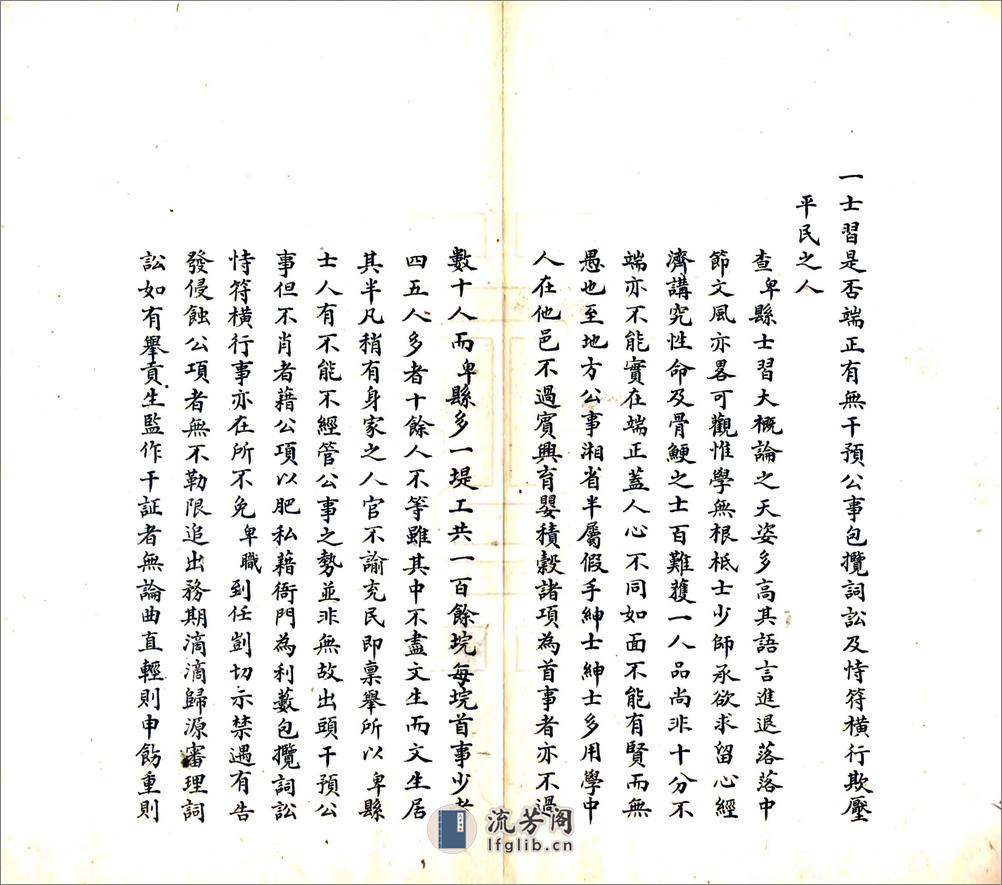 一士習是否端正有無干預公事包攬詞訟及恃符橫行欺壓
平民之人
查卑縣士習大概論之天姿多高其語言進退落落中
節文風亦畧可觀惟學無根柢士少師承欲求留心經
濟講究性命及骨鯁之士百難獲一人品尚非十分不
端亦不能實在端正蓋人心不同如面不能有賢而無
愚也至地方公事湘省半屬假手紳士紳士多用學中
人在他邑不過賓興育嬰積穀諸項為首事者亦不過
數十人而卑縣多一堤工共一百餘垸每垸首事少者
四五人多者十餘人不等雖其中不盡文生而文生居
其半凡稍有身家之人官不諭充民即稟舉所以卑縣
士人有不能不經管公事之勢並非無故出頭干預公
事但不肖者藉公項以肥私藉衙門為利藪包攬詞訟
恃符橫行事亦在所不免卑職到任剴切示禁遇有告
發侵蝕公項者無不勒限追出務期滴滴歸源審理詞
訟如有舉貢生監作干証者無論曲直輕則申飭重則
流芳阁
lfglib.cn